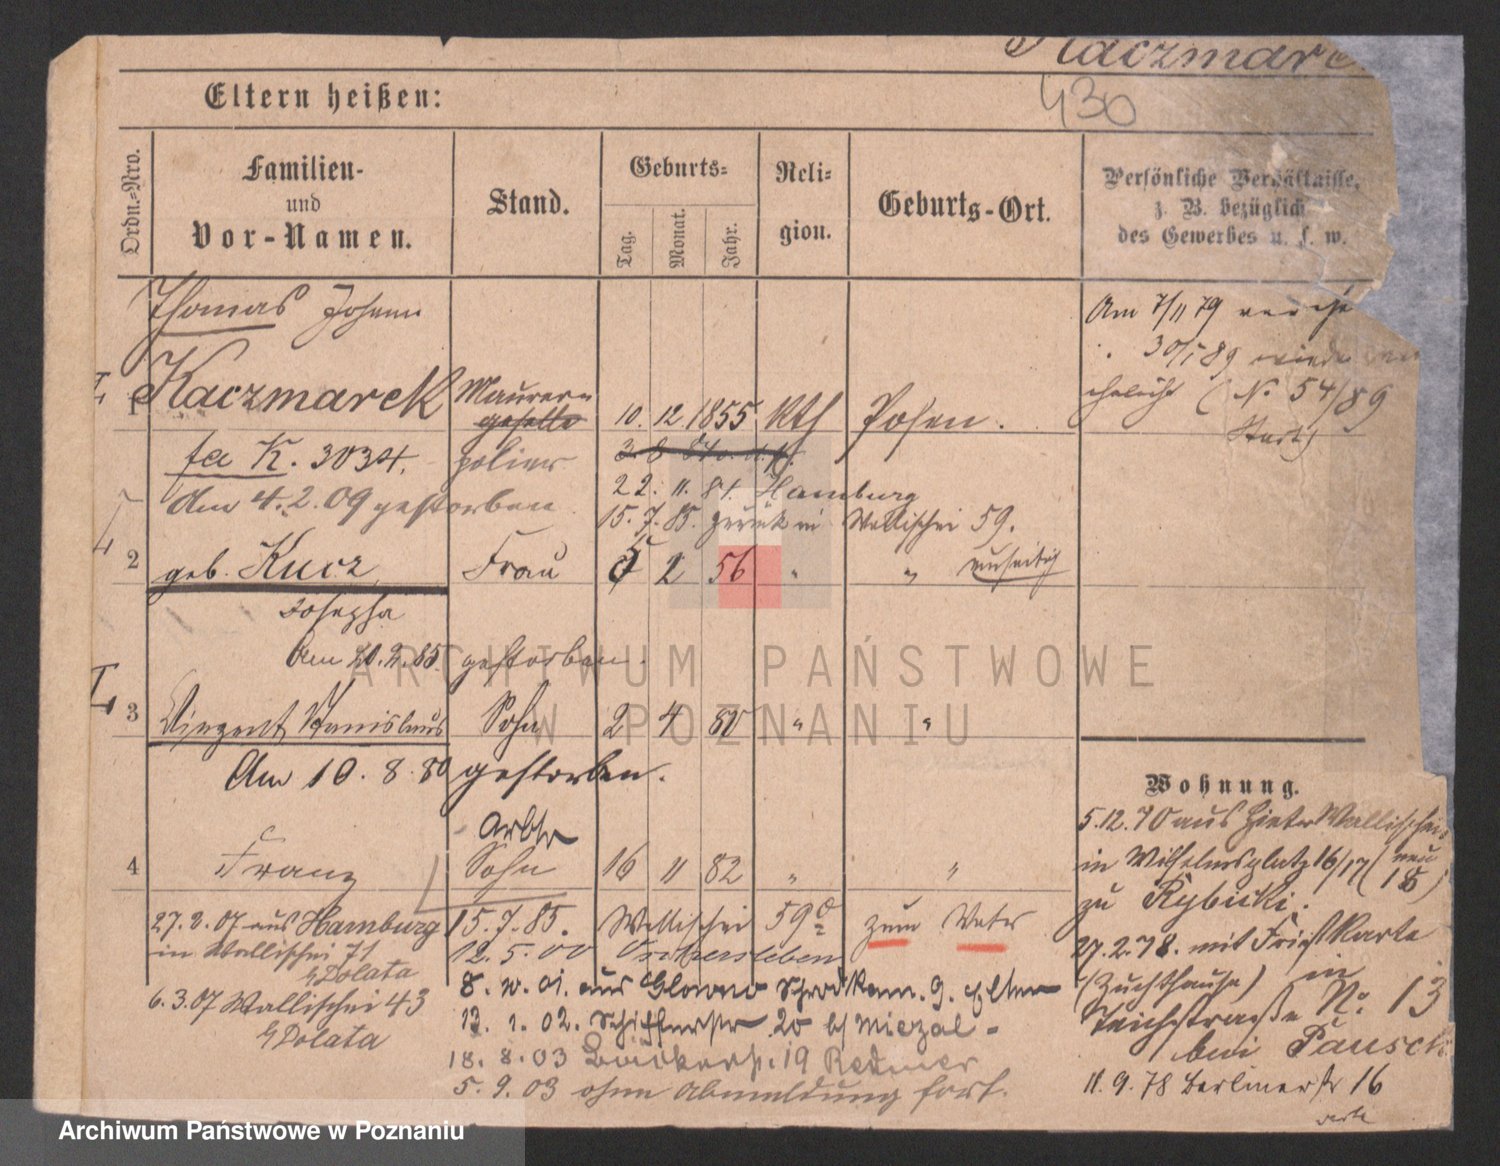 Kaczmarek
430
Eltern heißen:
Ordn.-Nro.
Familien-
und
Vor-Namen.
Stand.
Geburts-
Tag. Monat. Jahr.
Reli-
gion.
Geburts-Ort.
Persönliche Verhältnisse,
z. B. bezüglich
des Gewerbes u. s. w.
Thomas Johann
1 Kaczmarek Maurer
geselle 10. 12. 1855 kth Posen.
K. 3034. polier
22. 11. 81. Hamburg
Am 4.2.09 gestorben
15. 7. 85. zurück in Wallischei 59.
2 geb. Kucz Frau 2 56 " "
Josepha
Am 20.2.85 gestorben.
3 Vinzent Stanislaus Sohn 2 4 80 " "
Am 10. 8. 80 gestorben.
Arbtr
4 Franz Sohn 16 11 82 " "
27.2.07 aus Hamburg
in Wallischei 71
b/ Dolata
6.3.07 Wallischei 43
b/ Dolata
15. 7. 85. Wallischei 59 zum Vater
12. 5. 00 Oschersleben
8. 01. aus Glowno
13. 1. 02. Schifferstr 20 b/ Miezal
18. 8. 03 19
5. 9. 03 ohne Abmeldung fort.
Am 7/11 79
30/1 89
ehelicht (No 54/89
Wohnung.
5.12.70 aus Hinter Wallischei
in Wilhelmsplatz 16/17 (neu
18)
zu Rybicki.
27.2.78. mit Karte
(Zuchthause) in
Teichstraße No 13
bei
11.9.78 Berlinerstr 16
ARCHIWUM PAŃSTWOWE
W POZNANIU
Archiwum Państwowe w Poznaniu